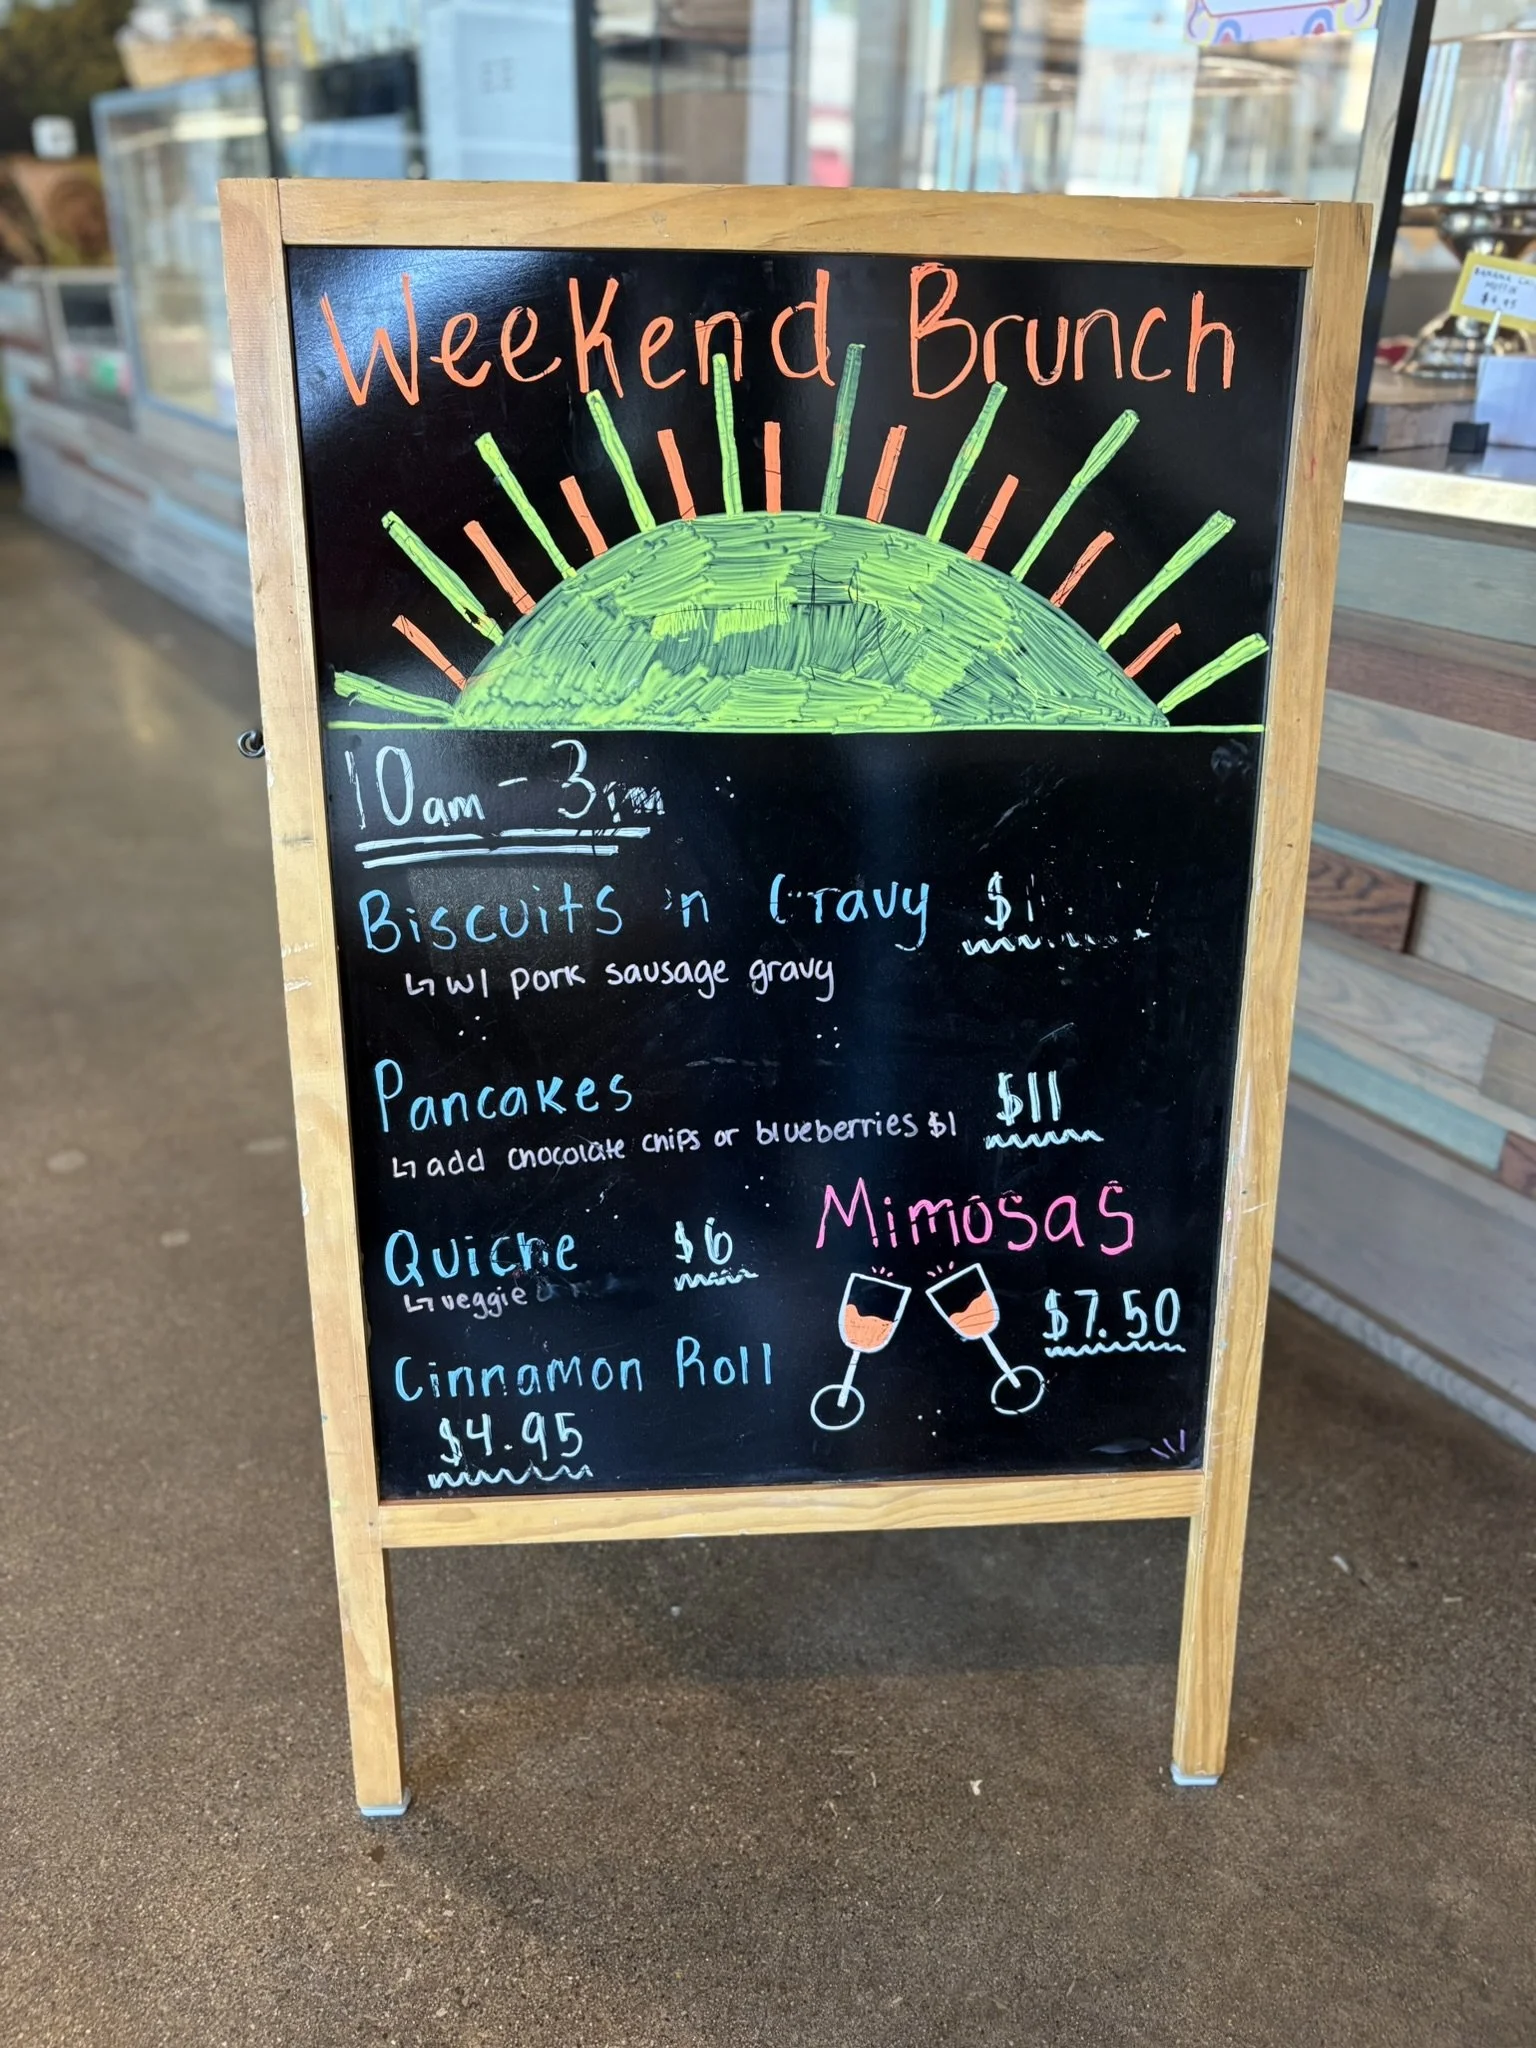 Weekend Brunch
10am - 3pm
Biscuits 'n Gravy
↳ w/ pork sausage gravy
Pancakes $11
↳ add chocolate chips or blueberries $1
Quiche $6
↳ veggie
Cinnamon Roll
$4.95
Mimosas
$7.50